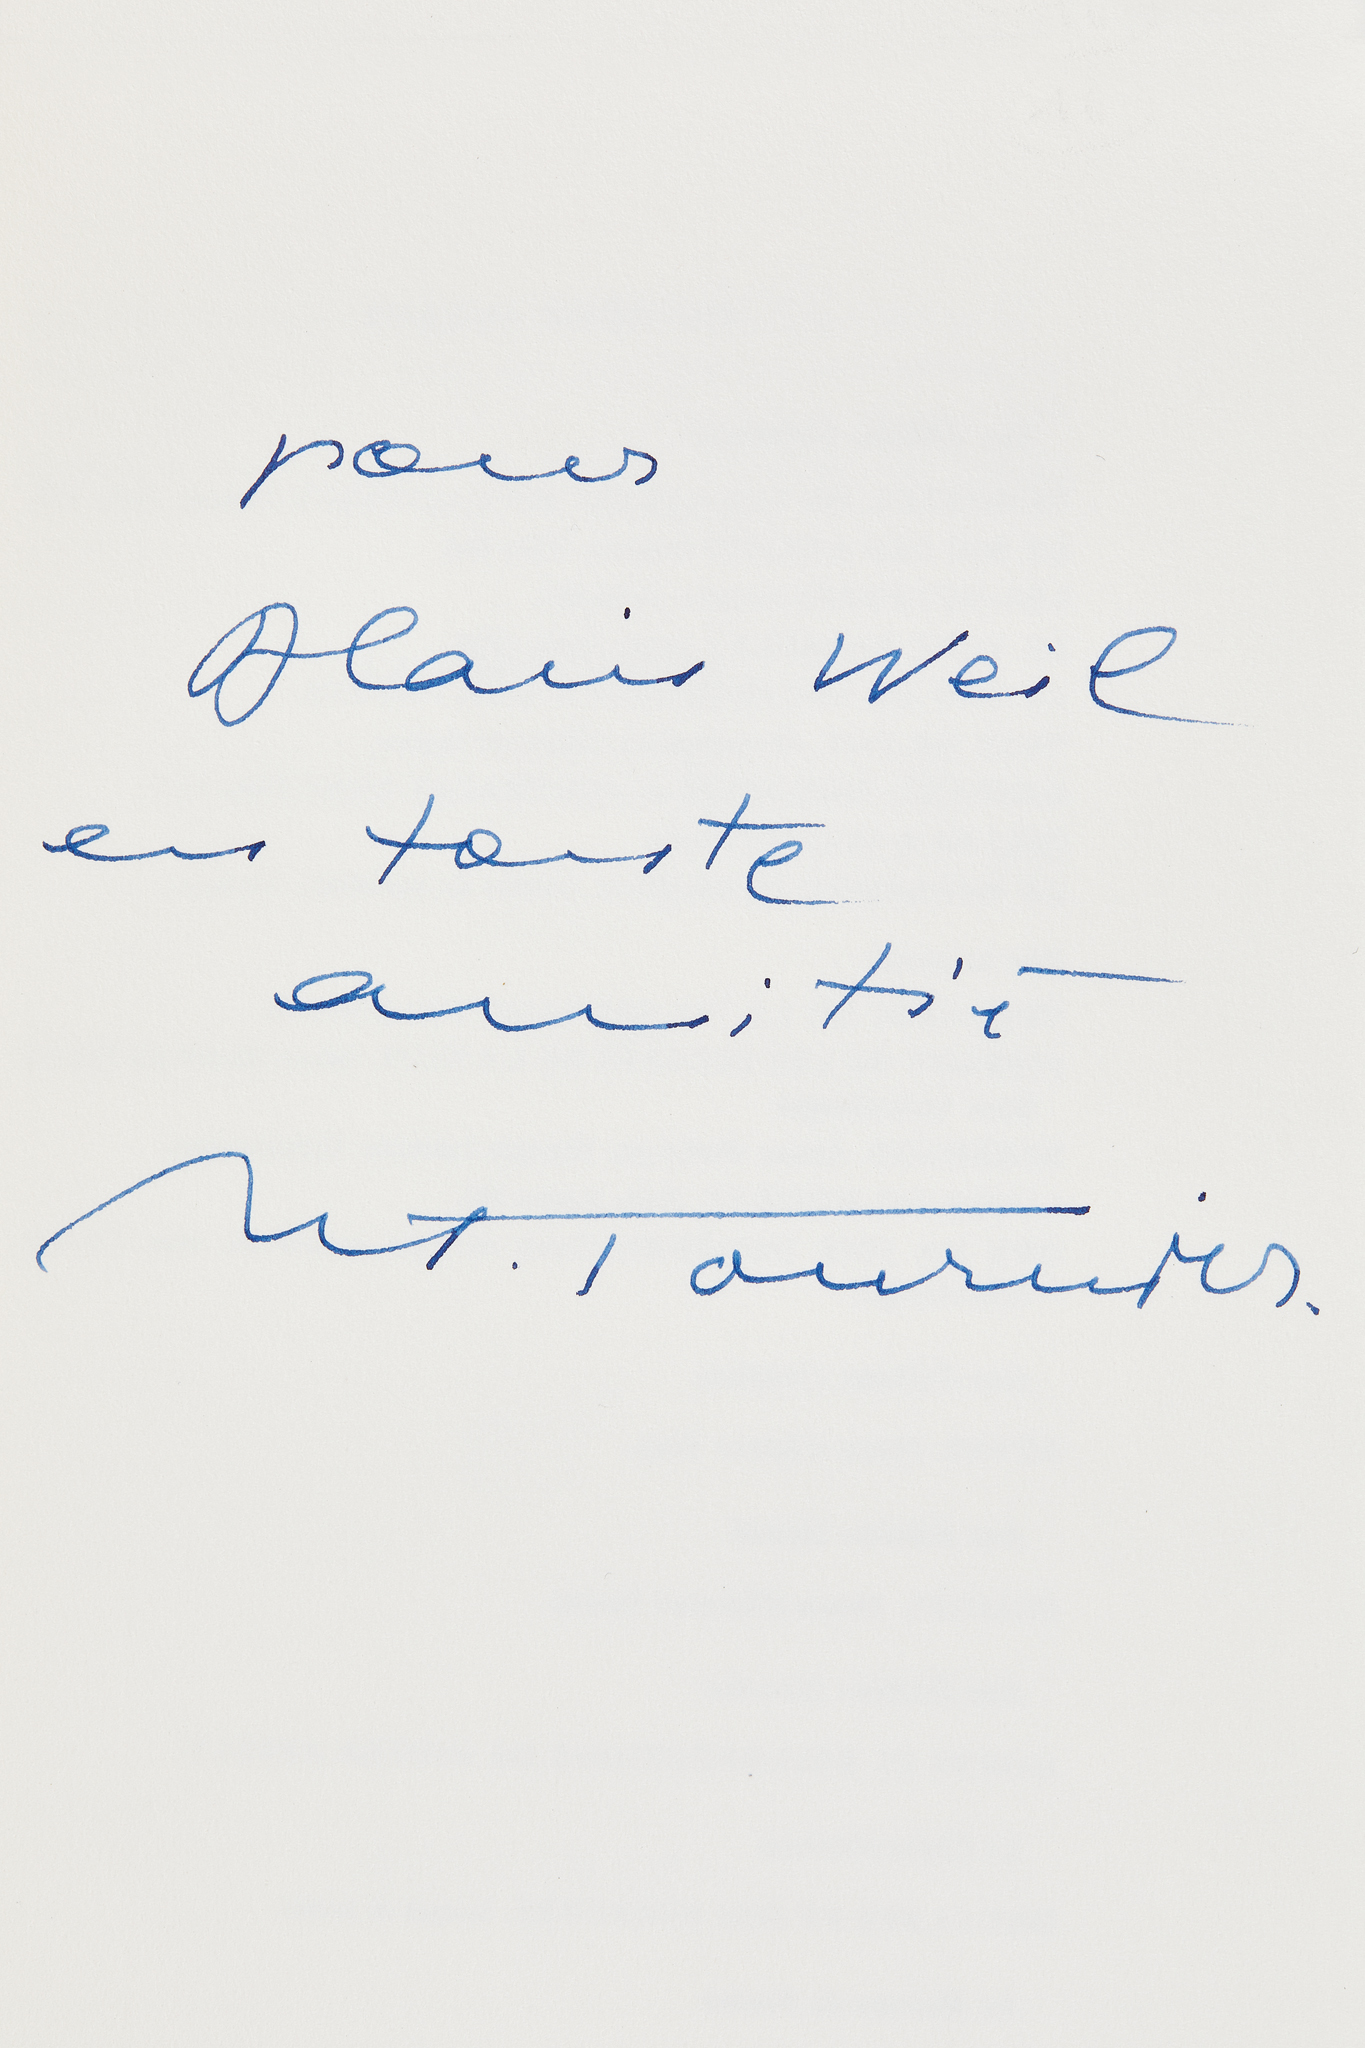 pour
Alain Weil
en toute
amitié
M. Tournier.